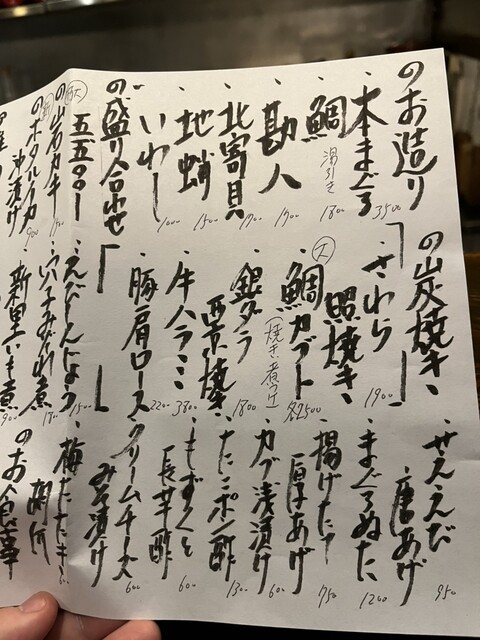 のお造り
・本まぐろ 3500
・鯛 湯引き 1800
・勘八 1700
・北寄貝 1700
・地蛸 1500
・いわし 1000
の盛り合わせ
五五〇〇〜
の岩ガキ
のホタルイカ
沖漬け 900
の炭焼き
・さわら
照焼き 1900
・鯛カブト 大
(焼き・煮つけ) 2500
・銀ダラ
西京焼 1800
・牛ハラミ 3800
・豚肩ロース 2200
・えびしんじょう 1500
・穴子みぞれ煮 1800
新里いも煮 900
・せえだ
唐あげ 950
・まぐろぬた 1200
・揚げたて
厚あげ 750
・カブ浅漬け 600
・たこポン酢 1300
・もずくと
長芋酢 600
・クリームチーズ
みそ漬け 600
・梅たたき
のお食事